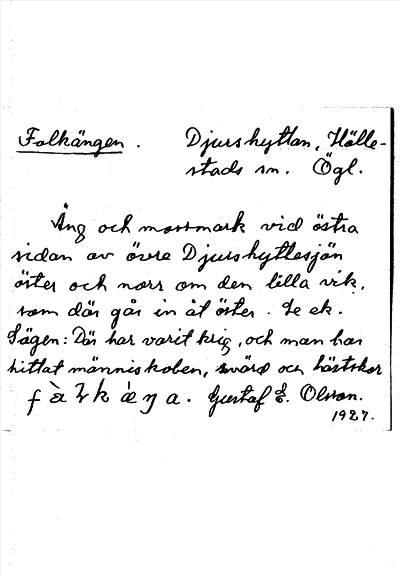 Folkängen. Djurshyttan, Hälle-
stads sn. Ögl.
Äng och mossmark vid östra
sidan av övre Djurshyttesjön
öster och norr om den lilla vik,
som där går in åt öster. Se ek.
Sägen: Där har varit krig, och man har
hittat människoben, svärd och hästskor
Gustaf E. Olsson.
1927.